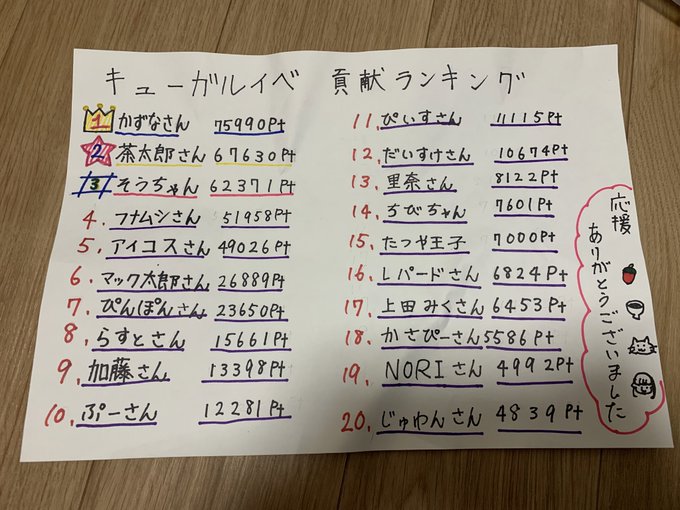 キューガルイベ 貢献ランキング
1 かずなさん 75990Pt
2 茶太郎さん 67630Pt
3 そうちゃん 62371Pt
4. フナムシさん 51958Pt
5. アイコスさん 49026Pt
6. マック太郎さん 26889Pt
7. ぴんぽんさん 23650Pt
8. らすとさん 15661Pt
9. 加藤さん 13398Pt
10. ぷーさん 12281Pt
11. ぴぃすさん 11115Pt
12. だいすけさん 10674Pt
13. 里奈さん 8122Pt
14. ちびちゃん 7601Pt
15. たつや王子 7000Pt
16. Lパードさん 6824Pt
17. 上田みくさん 6453Pt
18. かさぴーさん 5586Pt
19. NORIさん 4992Pt
20. じゅわんさん 4839Pt
応援
ありがとうございました